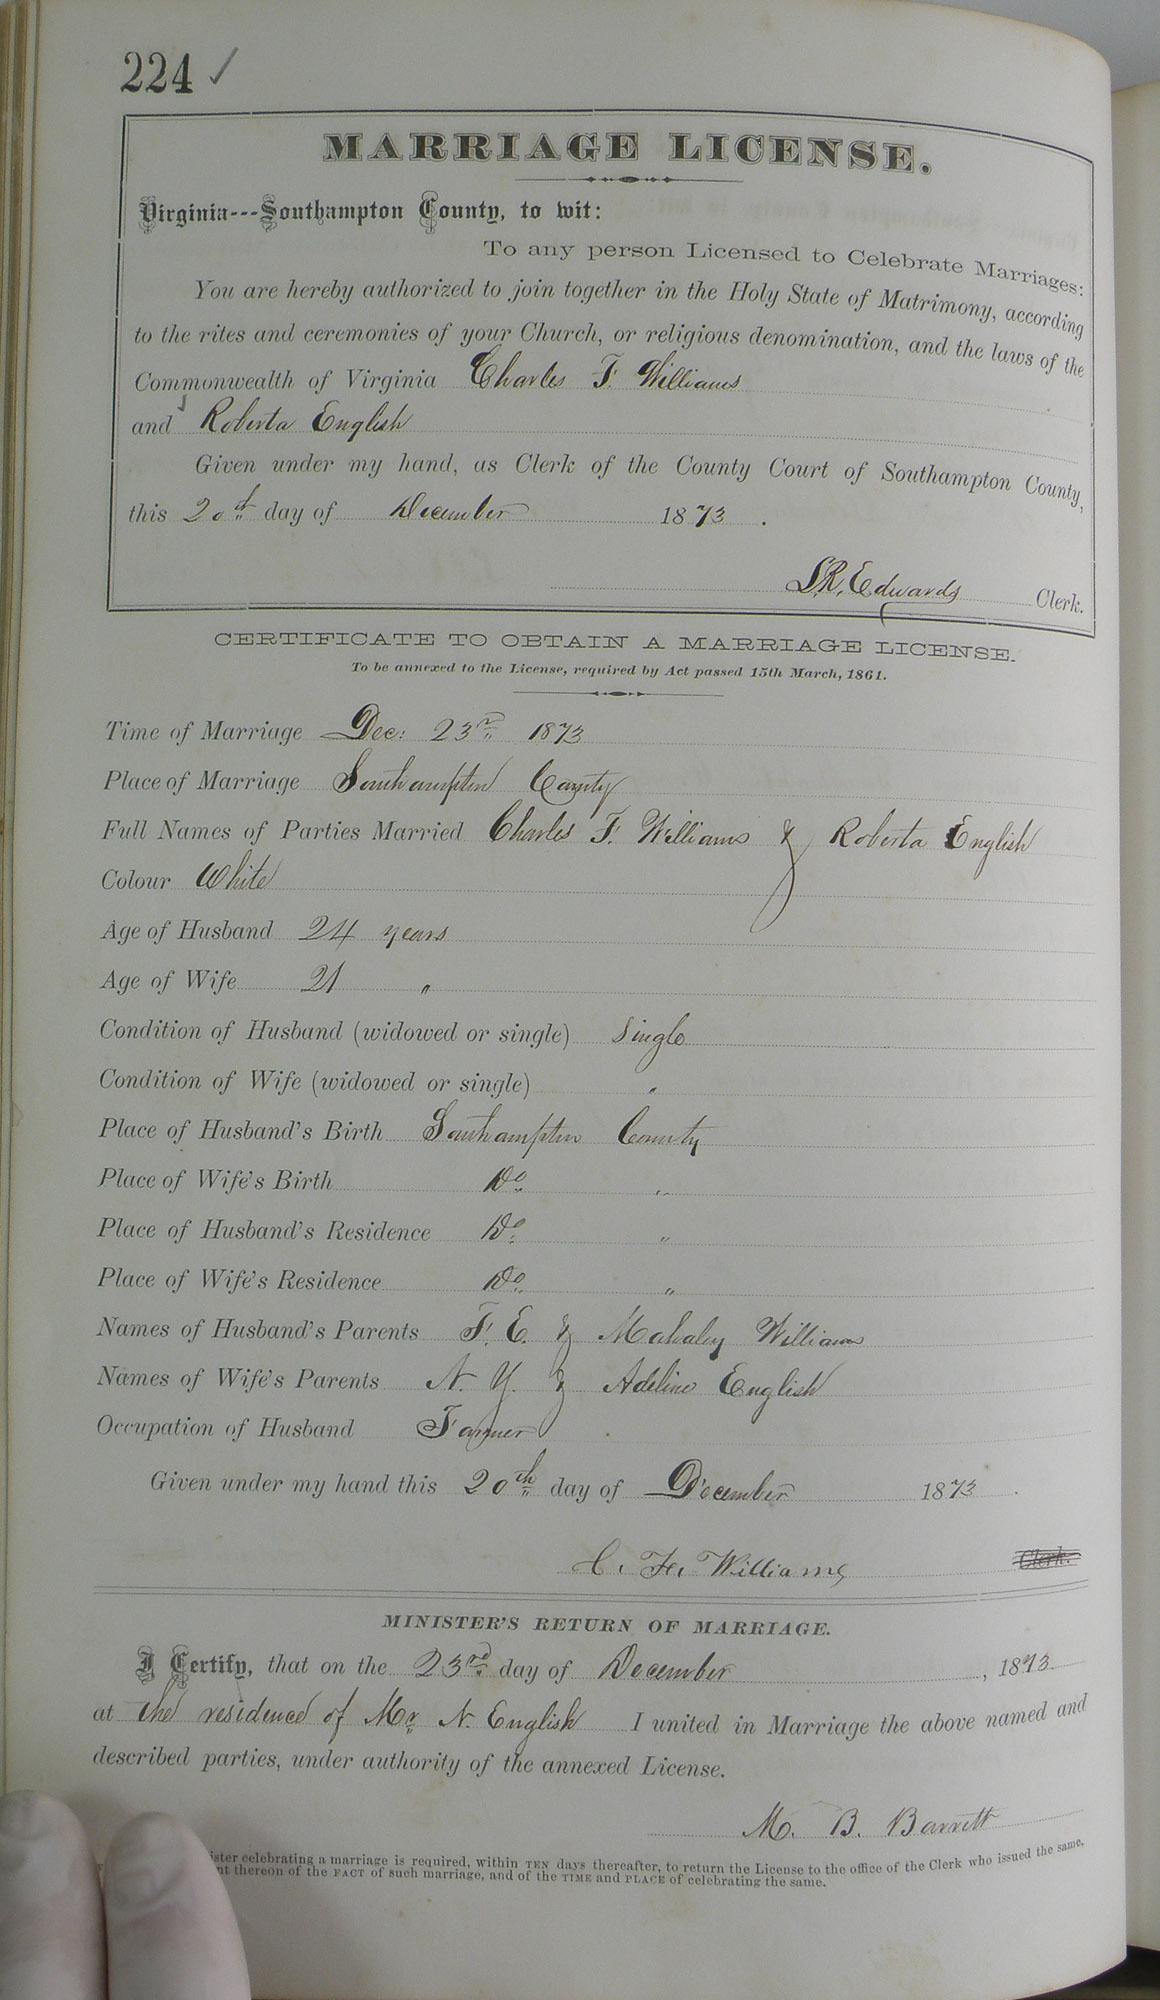 224 ✓
MARRIAGE LICENSE.
Virginia---Southampton County, to wit:
To any person Licensed to Celebrate Marriages:
You are hereby authorized to join together in the Holy State of Matrimony, according
to the rites and ceremonies of your Church, or religious denomination, and the laws of the
Commonwealth of Virginia Charles F. Williams
and Roberta English
Given under my hand, as Clerk of the County Court of Southampton County,
this 20th day of December 1873.
L.R. Edwards Clerk.
CERTIFICATE TO OBTAIN A MARRIAGE LICENSE.
To be annexed to the License, required by Act passed 15th March, 1861.
Time of Marriage Dec: 23rd 1873
Place of Marriage Southampton County
Full Names of Parties Married Charles F. Williams & Roberta English
Colour White
Age of Husband 24 years
Age of Wife 21 "
Condition of Husband (widowed or single) Single
Condition of Wife (widowed or single) "
Place of Husband's Birth Southampton County
Place of Wife's Birth Do "
Place of Husband's Residence Do "
Place of Wife's Residence Do "
Names of Husband's Parents F. E. & Mahaley Williams
Names of Wife's Parents N. Y. & Adeline English
Occupation of Husband Farmer
Given under my hand this 20th day of December 1873.
C. F. Williams Clerk.
MINISTER'S RETURN OF MARRIAGE.
I Certify, that on the 23rd day of December, 1873.
at the residence of Mr N. English I united in Marriage the above named and
described parties, under authority of the annexed License.
M. B. Barrett
ister celebrating a marriage is required, within TEN days thereafter, to return the License to the office of the Clerk who issued the same,
nt thereon of the FACT of such marriage, and of the TIME and PLACE of celebrating the same.